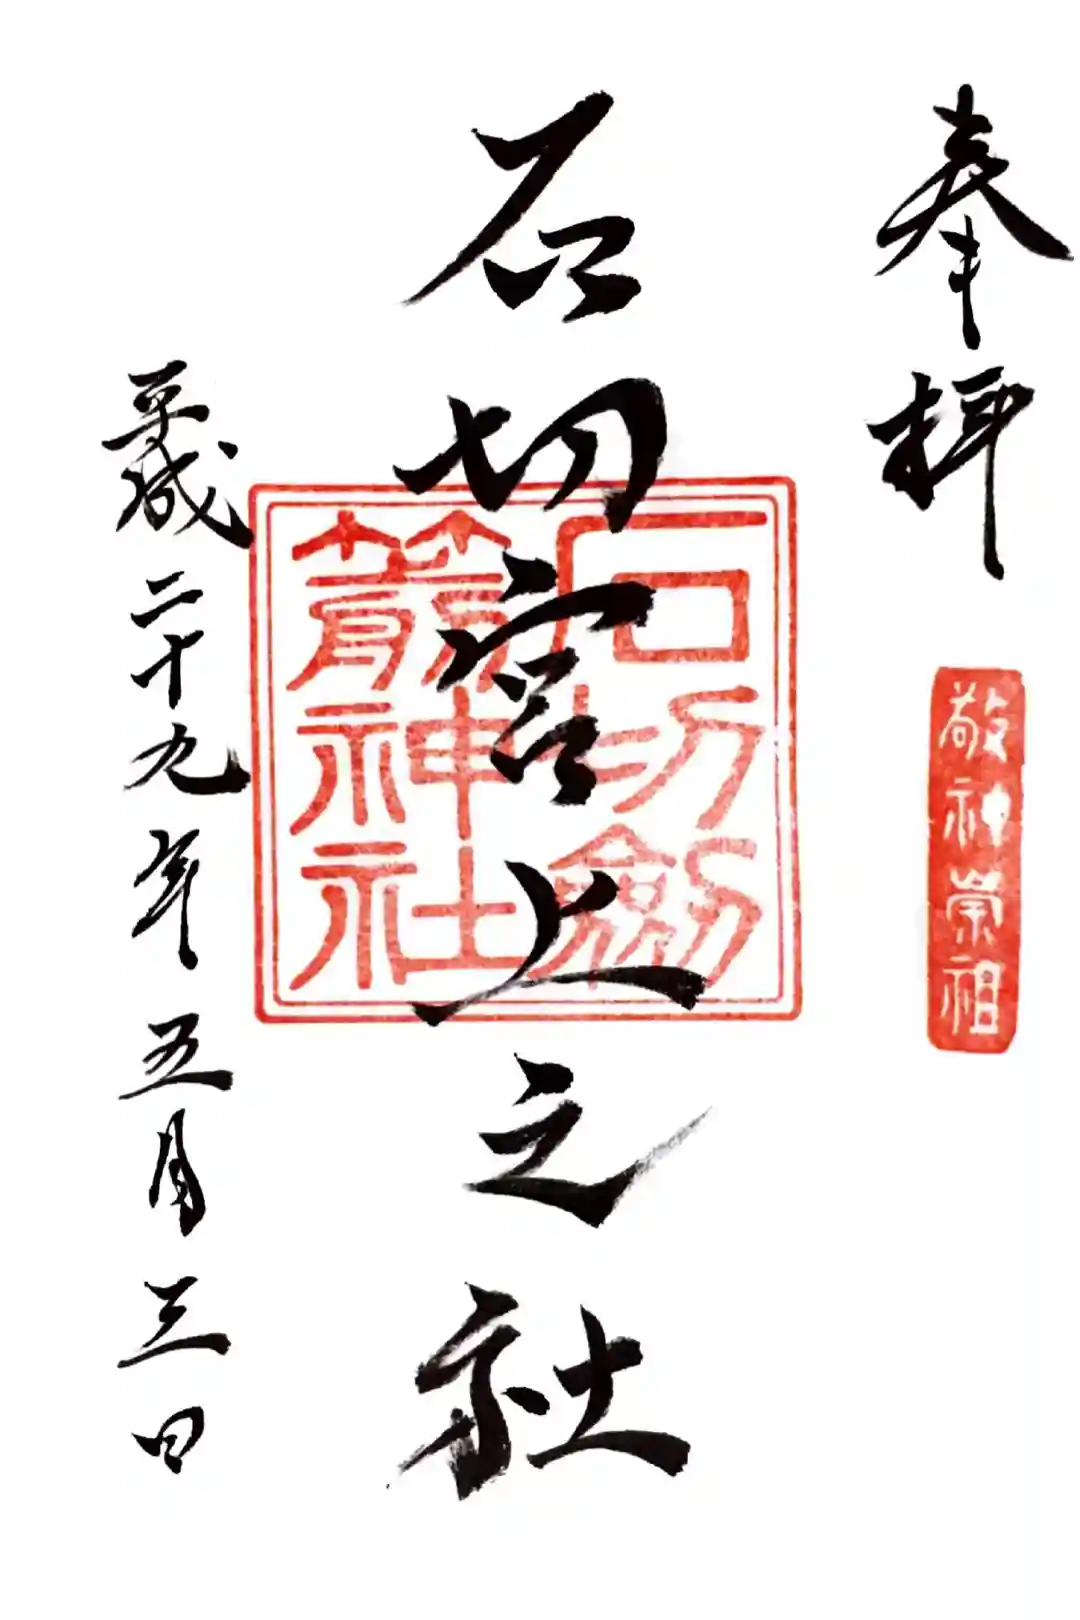 奉拝
敬神崇祖
石切宮上之社
石切劔
箭神社
平成二十九年五月三日